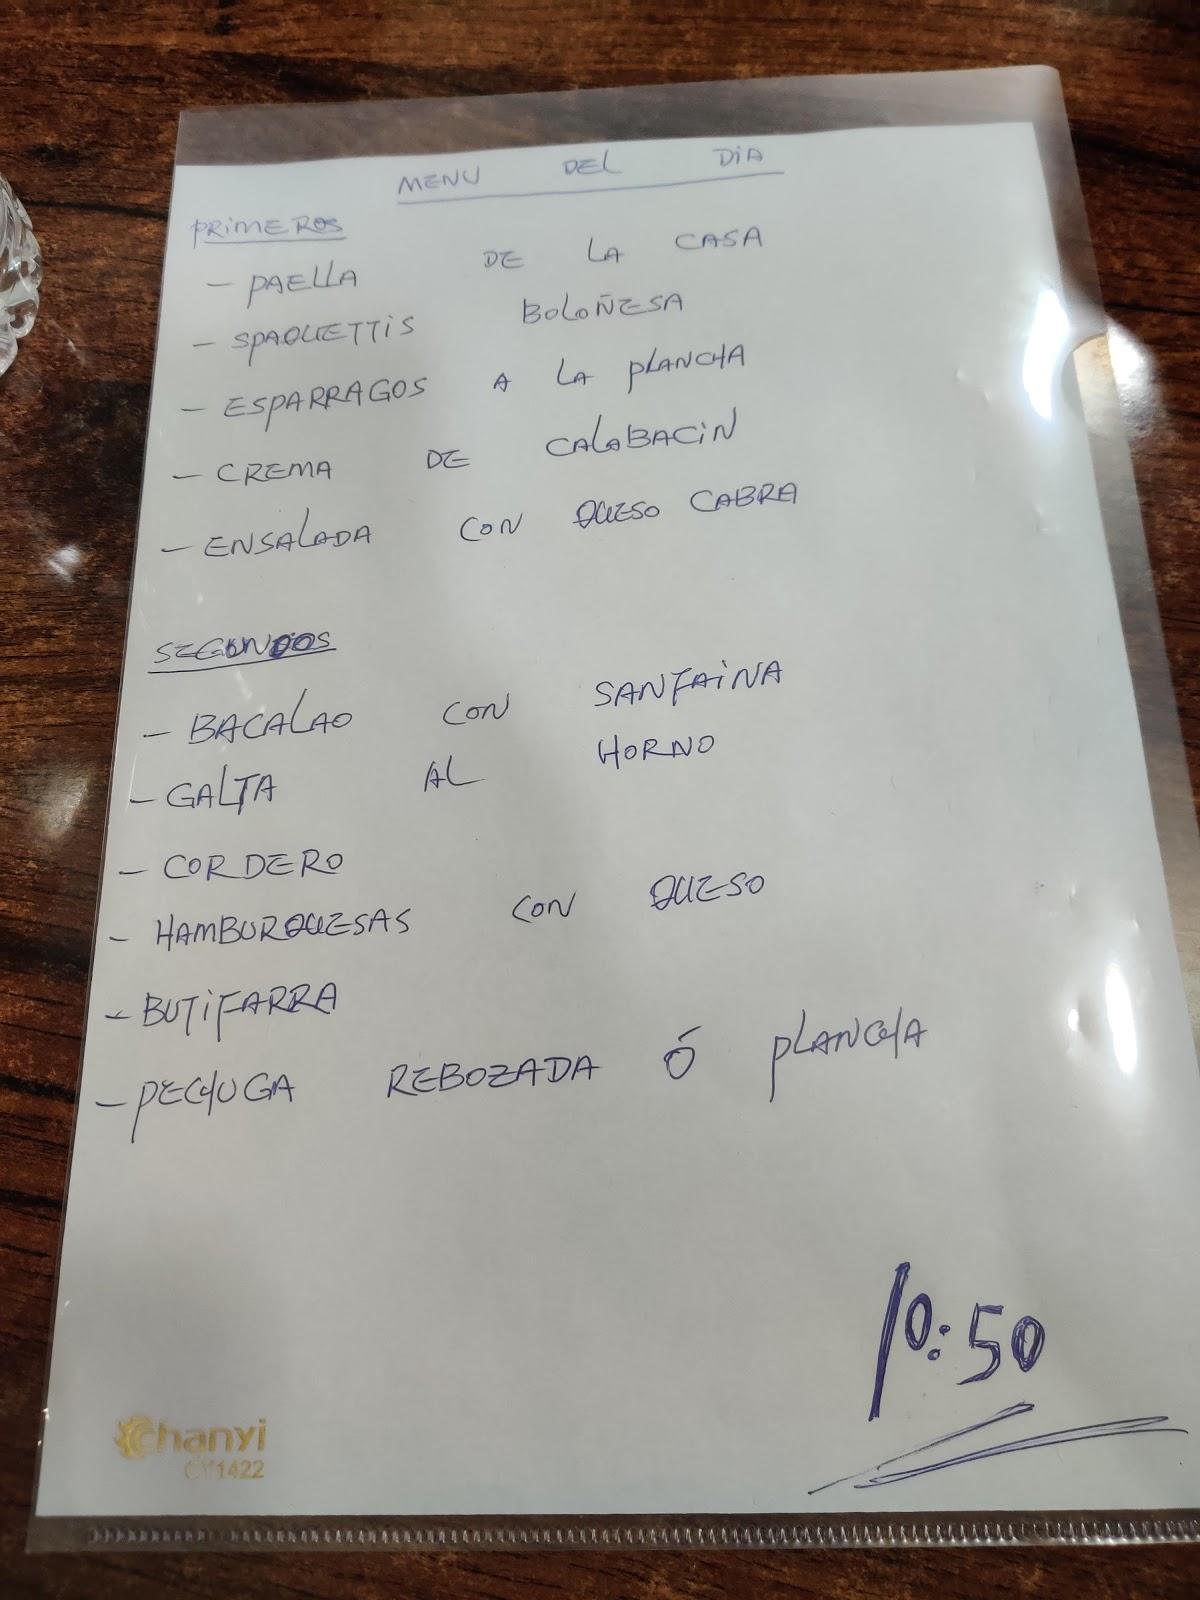 MENU DEL DIA
PRIMEROS
- PAELLA DE LA CASA
- SPAQUETTIS BOLOÑESA
- ESPARRAGOS A LA PLANCHA
- CREMA DE CALABACIN
- ENSALADA CON QUESO CABRA
SEGUNDOS
- BACALAO CON SANFAINA
- GALTA AL HORNO
- CORDERO
- HAMBURQUESAS CON QUESO
- BUTIFARRA
- PECHUGA REBOZADA Ó PLANCHA
10:50
Chanyi
CY1422